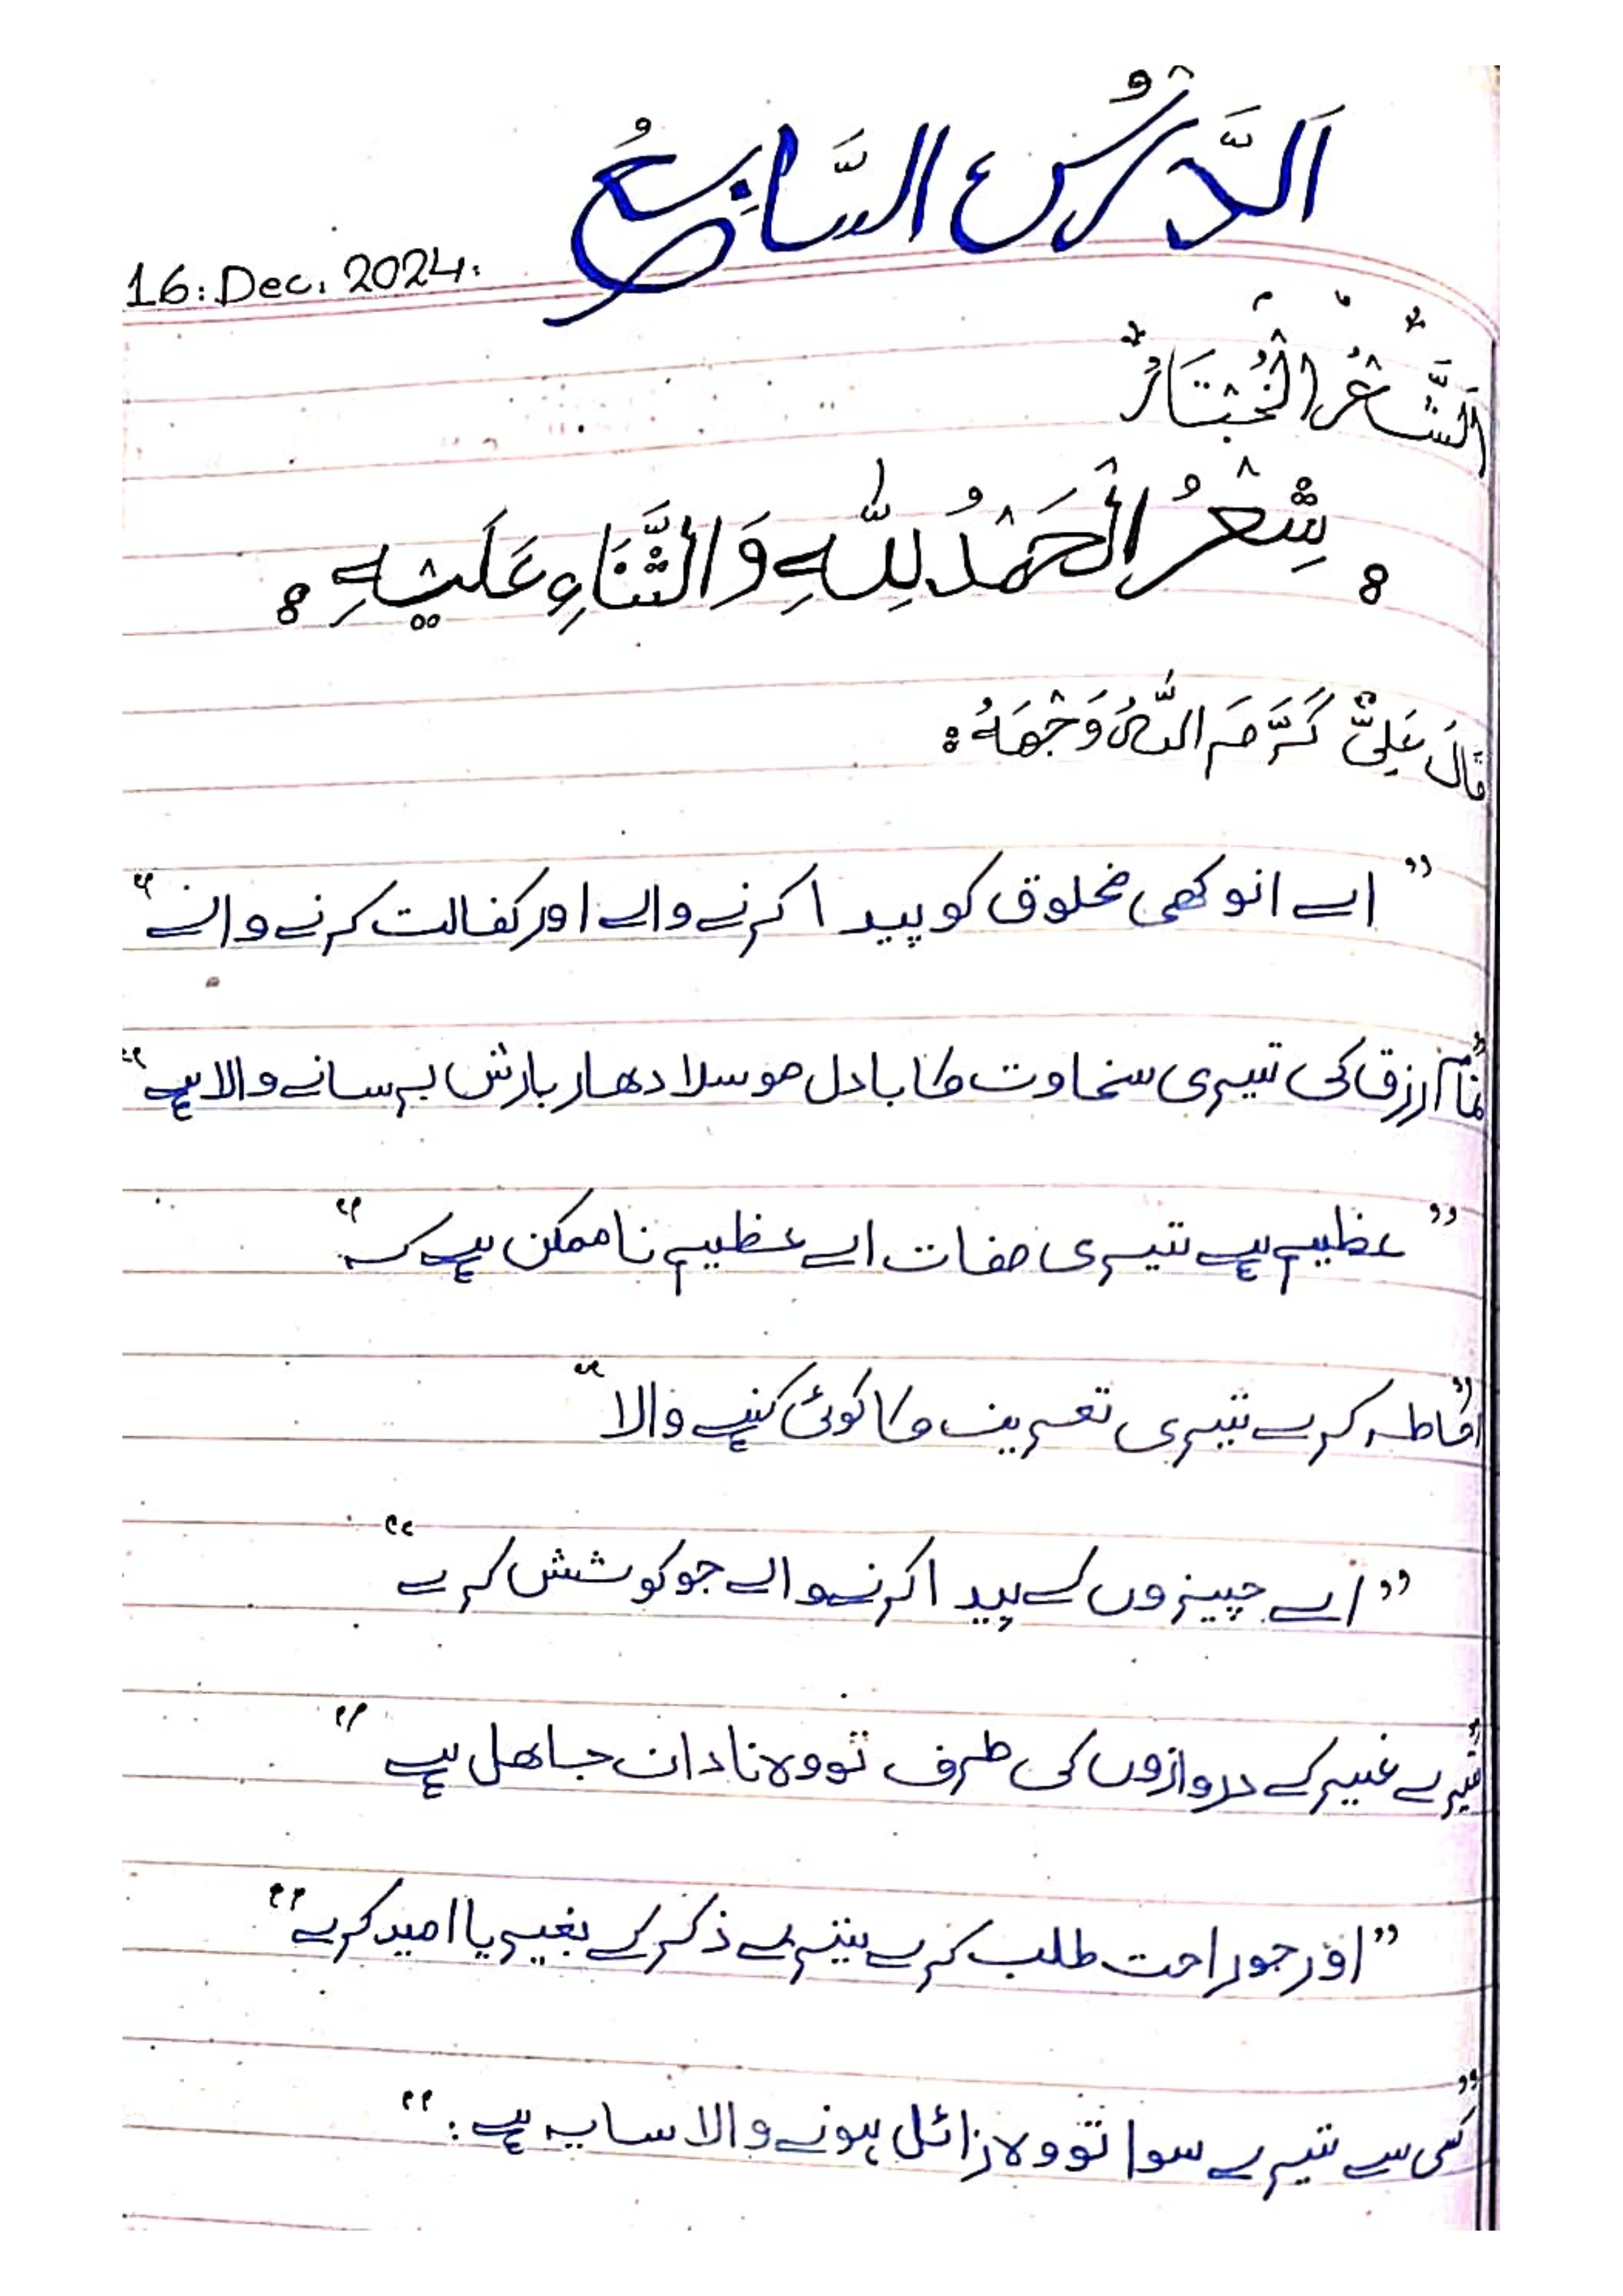 اَلدَّرْسُ السَّابِعُ
16: Dec. 2024.
اَلشَّعْرُ الْمُخْتَارُ
شِعْرُ الْحَمْدُ لِلّٰهِ وَالثَّنَاءِ عَلَيْهِ
قَالَ عَلِیٌّ كَرَّمَ اللّٰهُ وَجْهَهُ:
”اے انوکھی مخلوق کو پیدا کرنے والے اور کفالت کرنے والے“
”تمام رزق کی تیری سخاوت کا بادل موسلا دھار بارش برسانے والا ہے“
”عظیم ہے تیری صفات اے عظیم ناممکن ہے کہ“
”احاطہ کرے تیری تعریف کا کوئی کہنے والا“
”اے چیزوں کے پیدا کرنے والے جو کوشش کرے“
”تیرے غیر کے دروازوں کی طرف تو وہ نادان جاھل ہے“
”اور جو راحت طلب کرے تیرے ذکر کے بغیر یا امید کرے“
”کسی سے تیرے سوا تو وہ زائل ہونے والا سایہ ہے:“